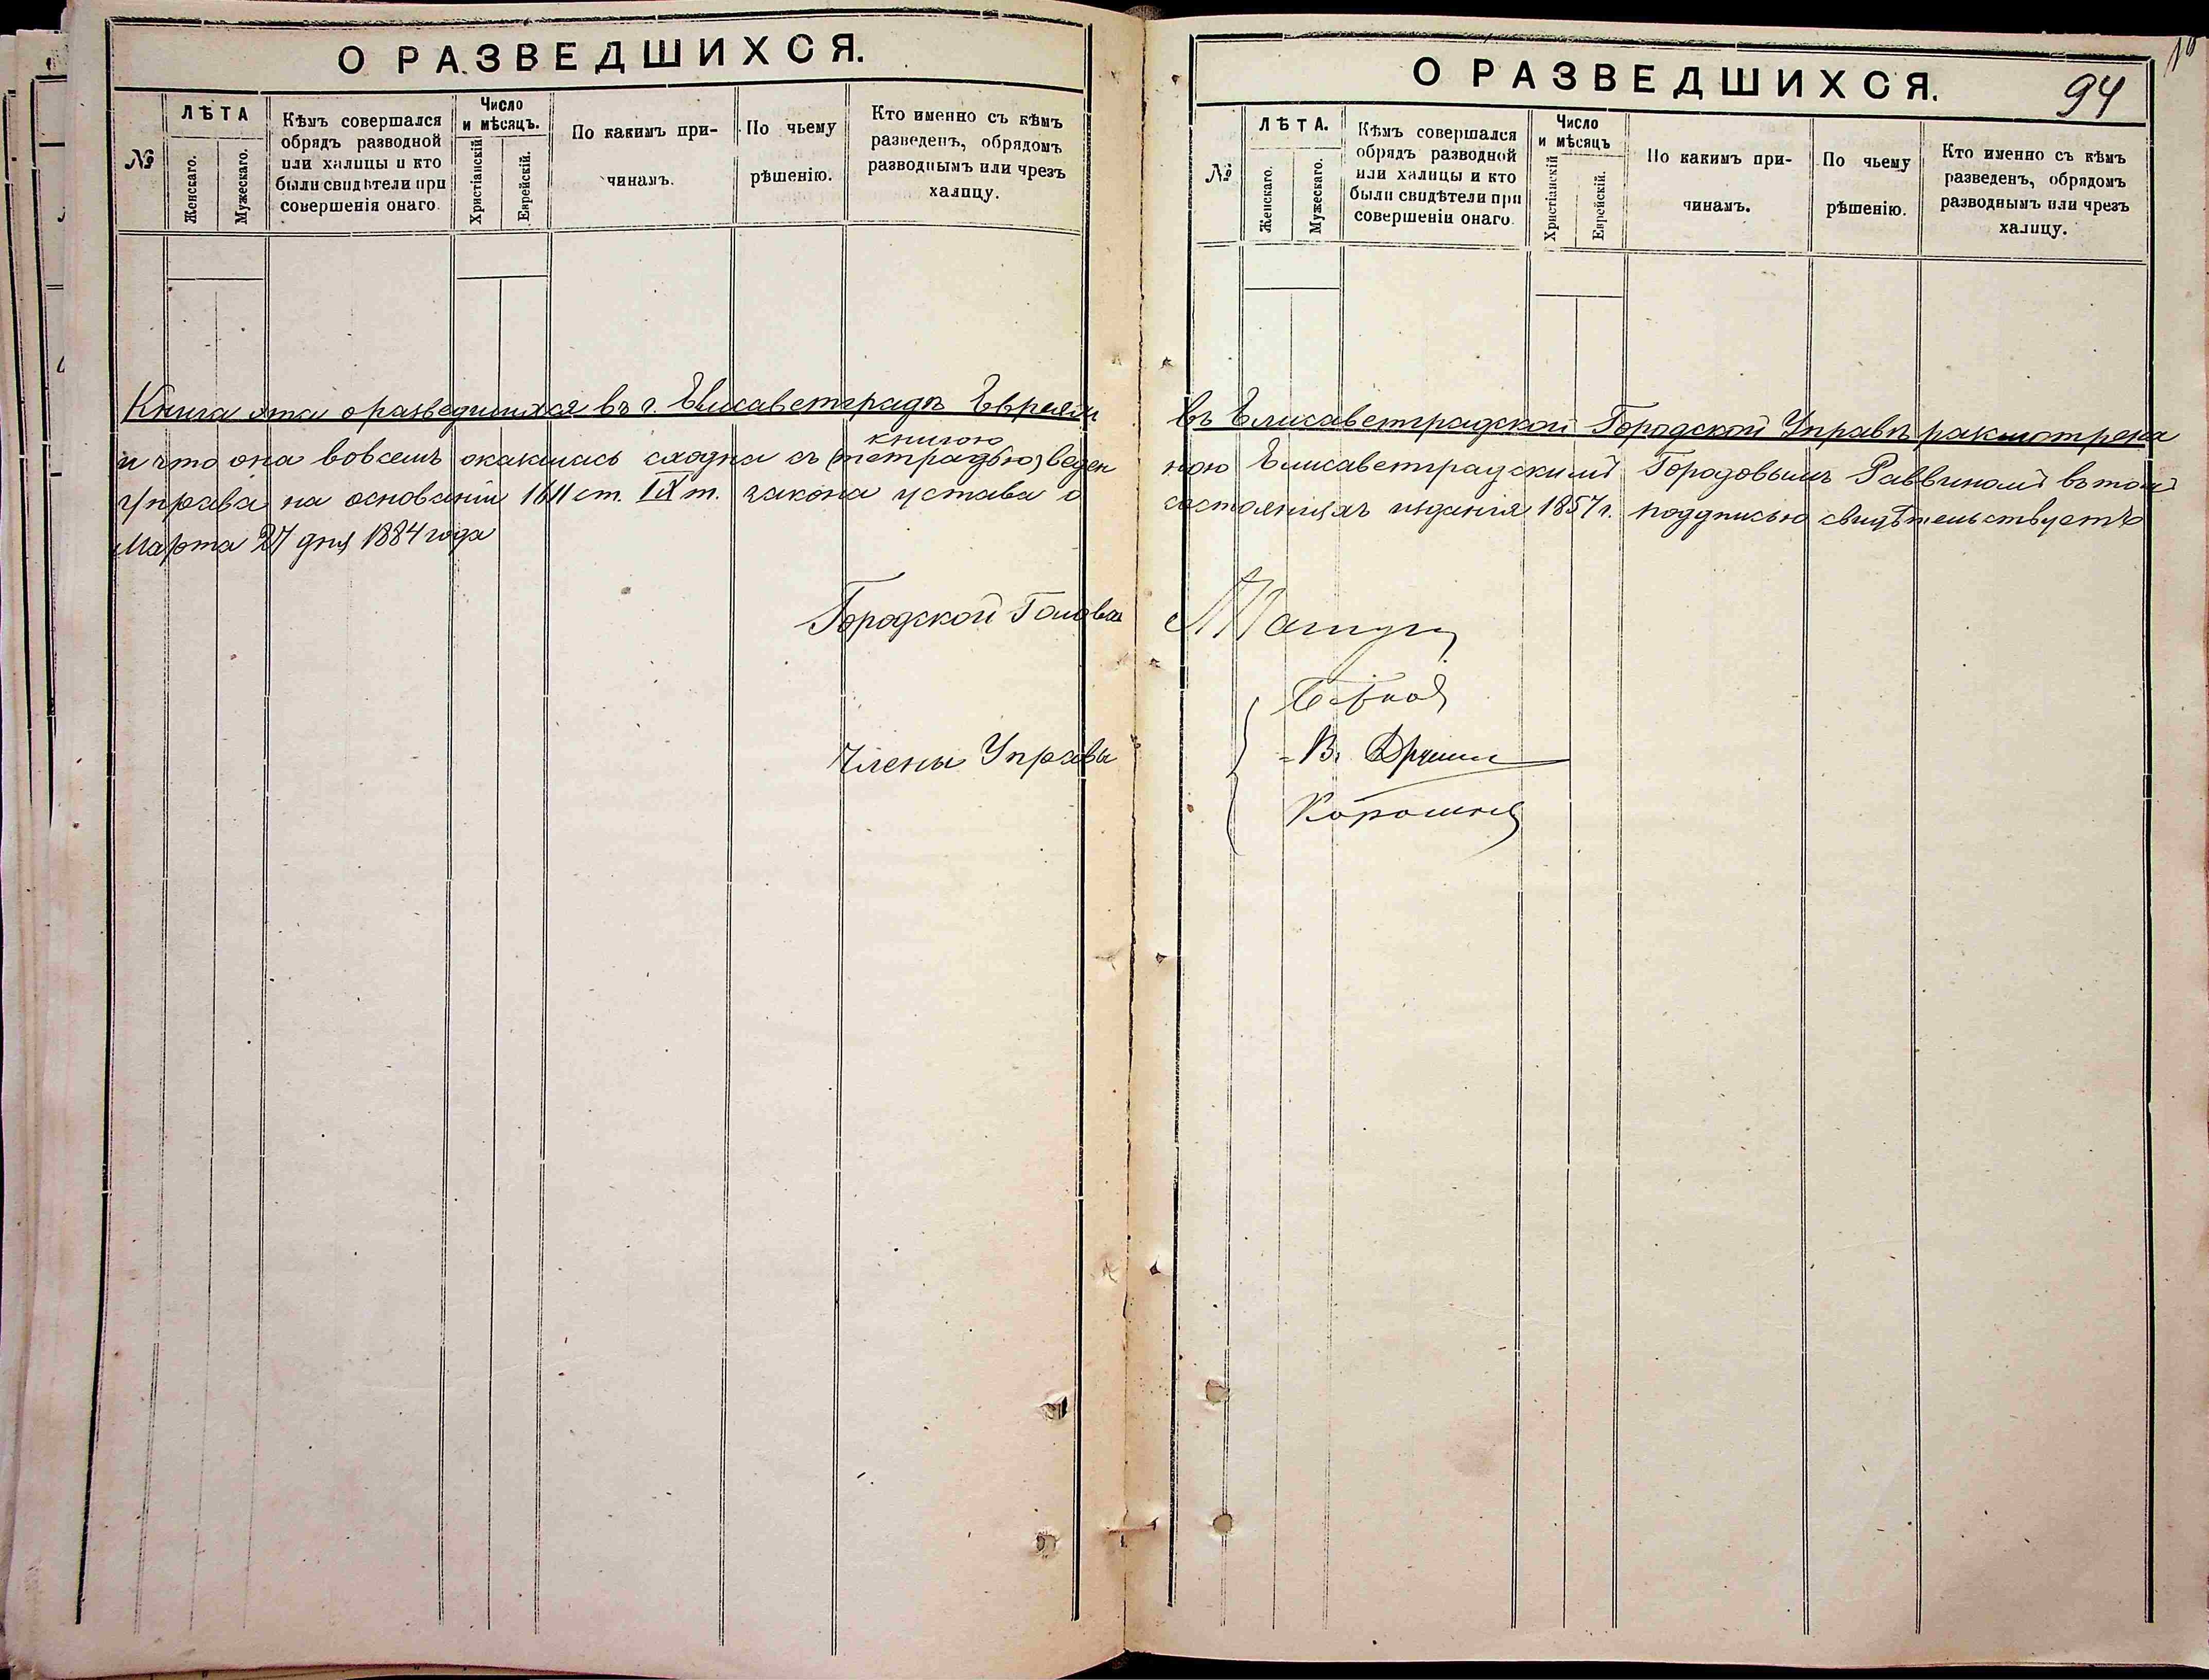 О РАЗВЕДШИХСЯ.
№
ЛѢТА
Женскаго.
Мужескаго.
Кѣмъ совершался
обрядъ разводной
или халицы и кто
были свидѣтели при
совершенія онаго.
Число
и мѣсяцъ.
Христіанскій
Еврейскій.
По какимъ при-
чинамъ.
По чьему
рѣшенію.
Кто именно съ кѣмъ
разведенъ, обрядомъ
разводнымъ или чрезъ
халицу.
Книга эта о разведшихся въ г. Елисаветградѣ Евреяхъ
книгою
и что она вовсемъ оказалась сходна съ (тетрадью) веден
Управа на основаніи 1611 ст. IX т. закона устава о
Марта 27 дня 1884 года
Городской Голова
Члены Управы
О РАЗВЕДШИХСЯ.
94
№
ЛѢТА.
Женскаго.
Мужескаго.
Кѣмъ совершался
обрядъ разводной
или халицы и кто
были свидѣтели при
совершеніи онаго.
Число
и мѣсяцъ
Христіанскій
Еврейскій.
По какимъ при-
чинамъ.
По чьему
рѣшенію.
Кто именно съ кѣмъ
разведенъ, обрядомъ
разводнымъ или чрезъ
халицу.
въ Елисаветградской Городской Управѣ разсмотрена
ною Елисаветградскимъ Городовымъ Раввиномъ въ томъ
состояніяхъ изданія 1857 г. подписью свидѣтельствуетъ
В.